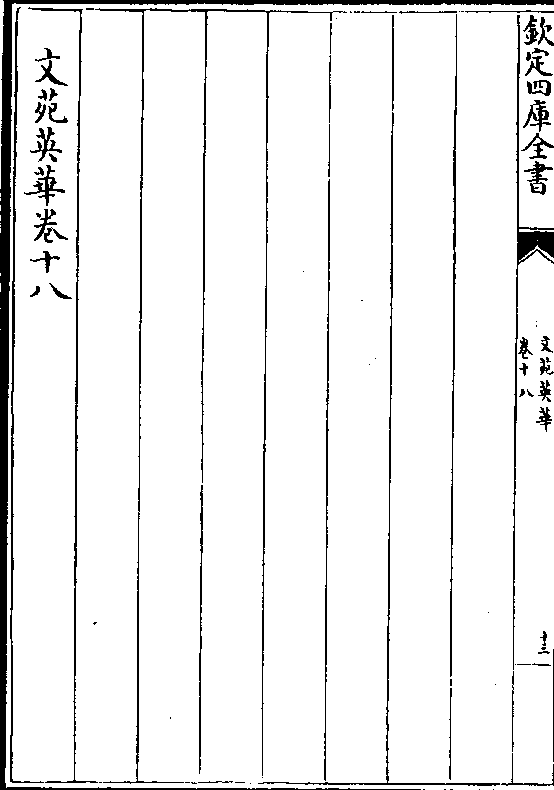 欽定四庫全書
文苑英華
卷十八
十三
文苑英華卷十八